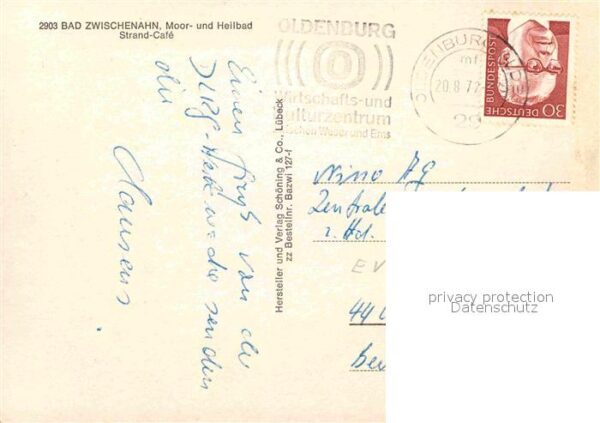 2903 BAD ZWISCHENAHN, Moor- und Heilbad
Strand-Café
OLDENBURG
Wirtschafts-und
Kulturzentrum
zwischen Weser und Ems
OLDENBURG
20.8.7
29
DEUTSCHE BUNDESPOST
30
Einen Gruß von der
DLRG-
senden
die
Clausens.
Hersteller und Verlag Schöning & Co., Lübeck
zz Bestellnr. Bazwi 127-f
Nino AG
Zentrale
z. Hd.
EV
44
privacy protection
Datenschutz